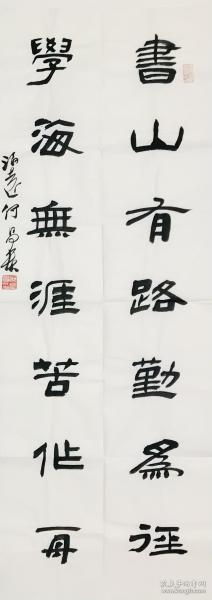 書山有路勤為徑
學海無涯苦作舟
何昌森